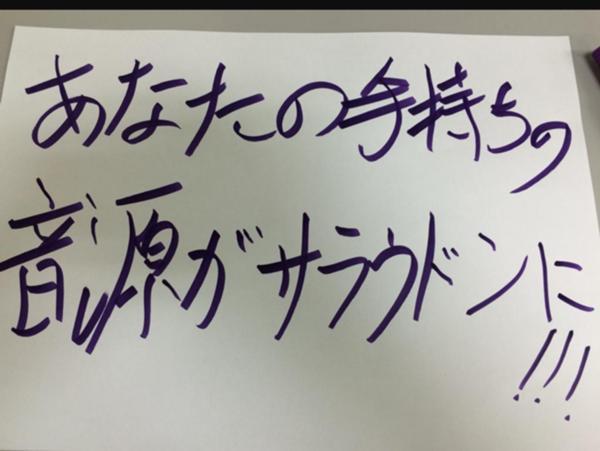 あなたの手持ちの
音源がサラウドンに
!!!